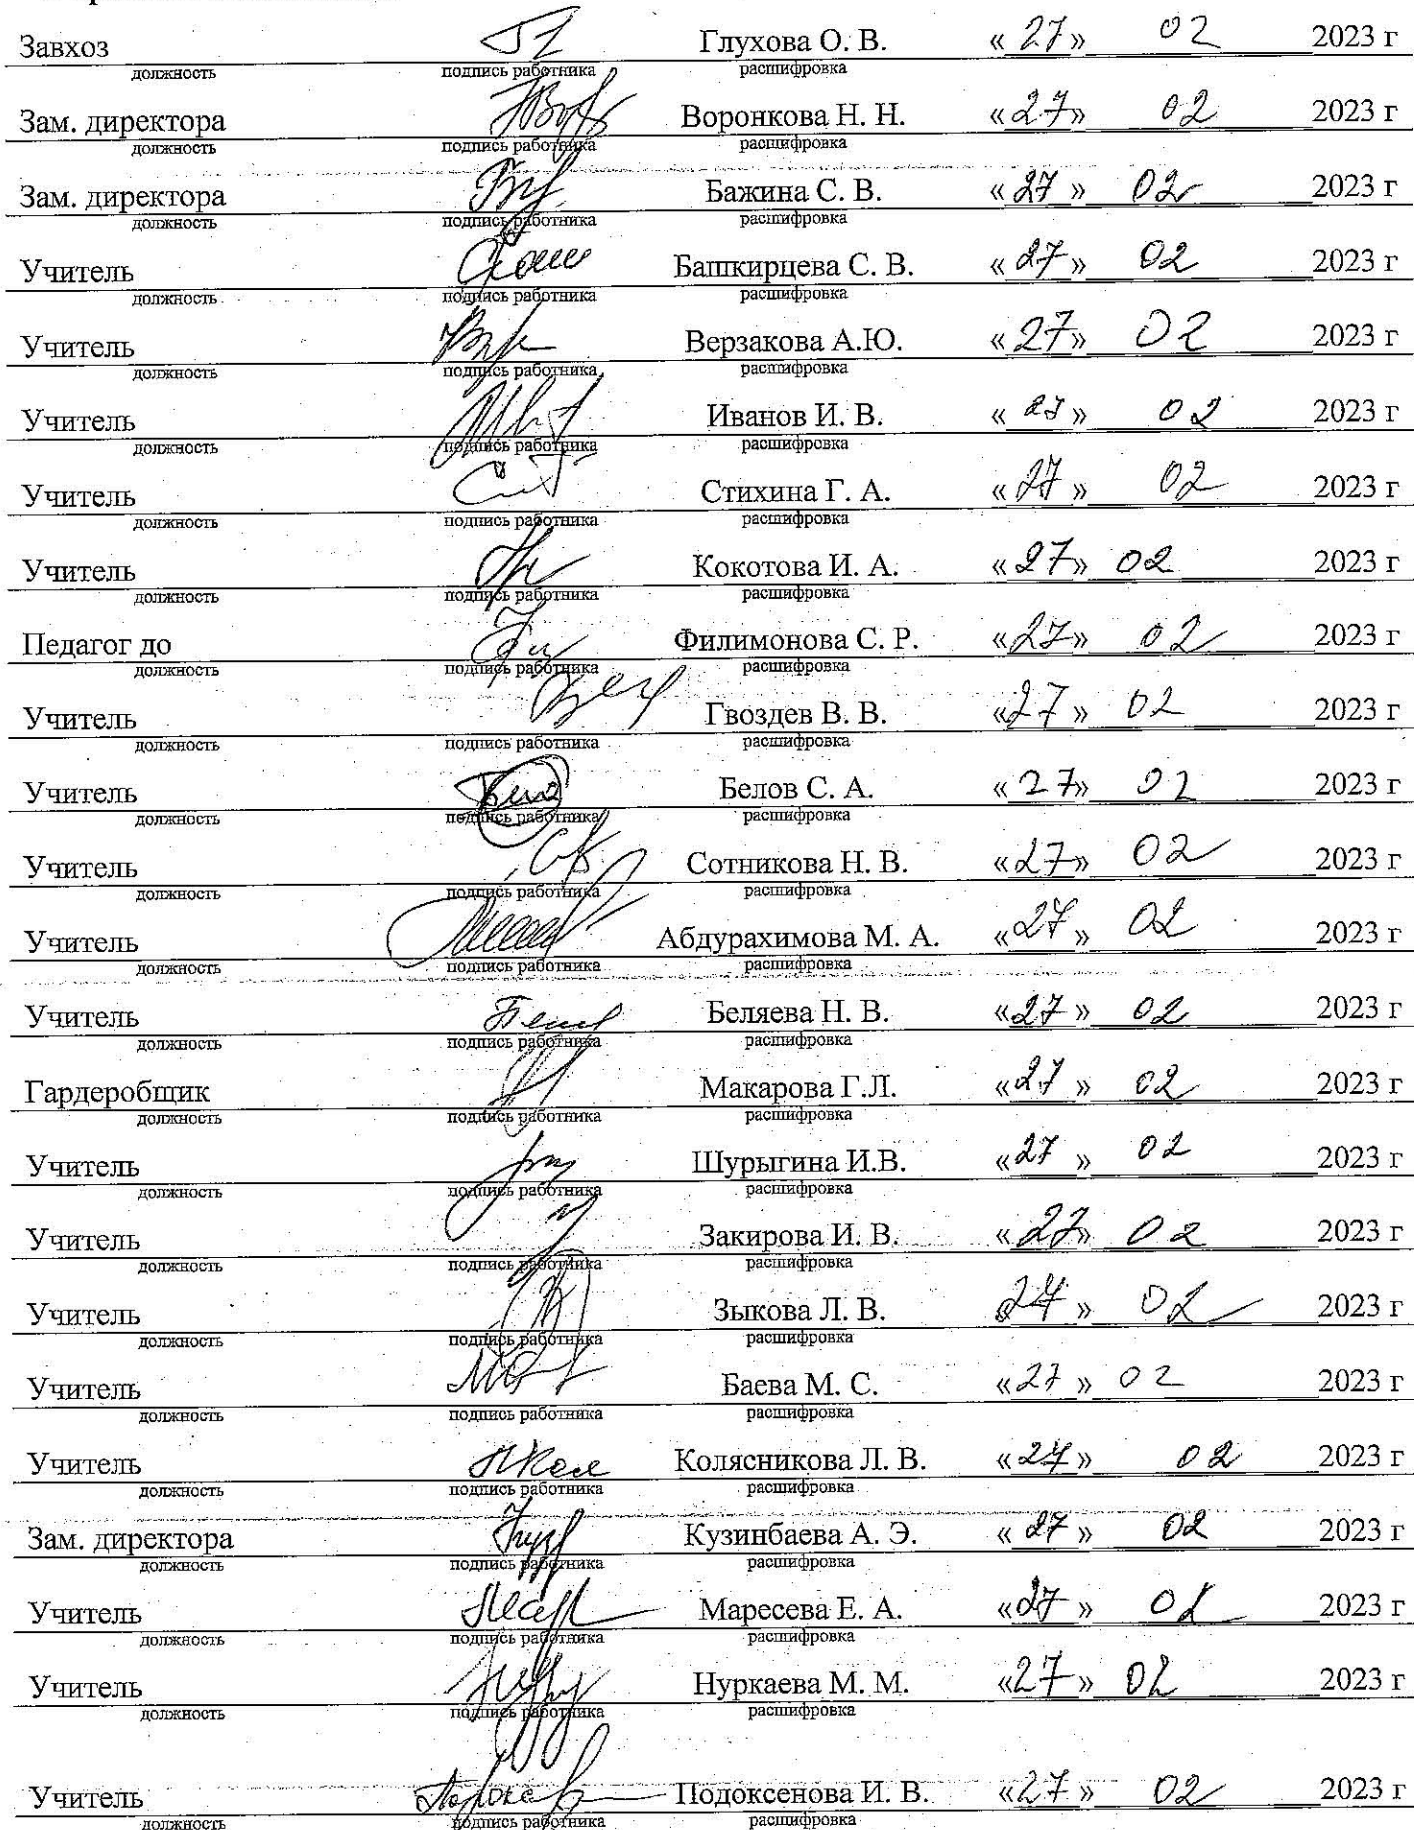 Завхоз Глухова О. В. « 27 » 02 2023 г
должность подпись работника расшифровка
Зам. директора Воронкова Н. Н. « 27 » 02 2023 г
должность подпись работника расшифровка
Зам. директора Бажина С. В. « 27 » 02 2023 г
должность подпись работника расшифровка
Учитель Башкирцева С. В. « 27 » 02 2023 г
должность подпись работника расшифровка
Учитель Верзакова А.Ю. « 27 » 02 2023 г
должность подпись работника расшифровка
Учитель Иванов И. В. « 27 » 02 2023 г
должность подпись работника расшифровка
Учитель Стихина Г. А. « 27 » 02 2023 г
должность подпись работника расшифровка
Учитель Кокотова И. А. « 27 » 02 2023 г
должность подпись работника расшифровка
Педагог до Филимонова С. Р. « 27 » 02 2023 г
должность подпись работника расшифровка
Учитель Гвоздев В. В. « 27 » 02 2023 г
должность подпись работника расшифровка
Учитель Белов С. А. « 27 » 02 2023 г
должность подпись работника расшифровка
Учитель Сотникова Н. В. « 27 » 02 2023 г
должность подпись работника расшифровка
Учитель Абдурахимова М. А. « 27 » 02 2023 г
должность подпись работника расшифровка
Учитель Беляева Н. В. « 27 » 02 2023 г
должность подпись работника расшифровка
Гардеробщик Макарова Г.Л. « 27 » 02 2023 г
должность подпись работника расшифровка
Учитель Шурыгина И.В. « 27 » 02 2023 г
должность подпись работника расшифровка
Учитель Закирова И. В. « 27 » 02 2023 г
должность подпись работника расшифровка
Учитель Зыкова Л. В. « 27 » 02 2023 г
должность подпись работника расшифровка
Учитель Баева М. С. « 27 » 02 2023 г
должность подпись работника расшифровка
Учитель Колясникова Л. В. « 27 » 02 2023 г
должность подпись работника расшифровка
Зам. директора Кузинбаева А. Э. « 27 » 02 2023 г
должность подпись работника расшифровка
Учитель Маресева Е. А. « 27 » 02 2023 г
должность подпись работника расшифровка
Учитель Нуркаева М. М. « 27 » 02 2023 г
должность подпись работника расшифровка
Учитель Подоксенова И. В. « 27 » 02 2023 г
должность подпись работника расшифровка